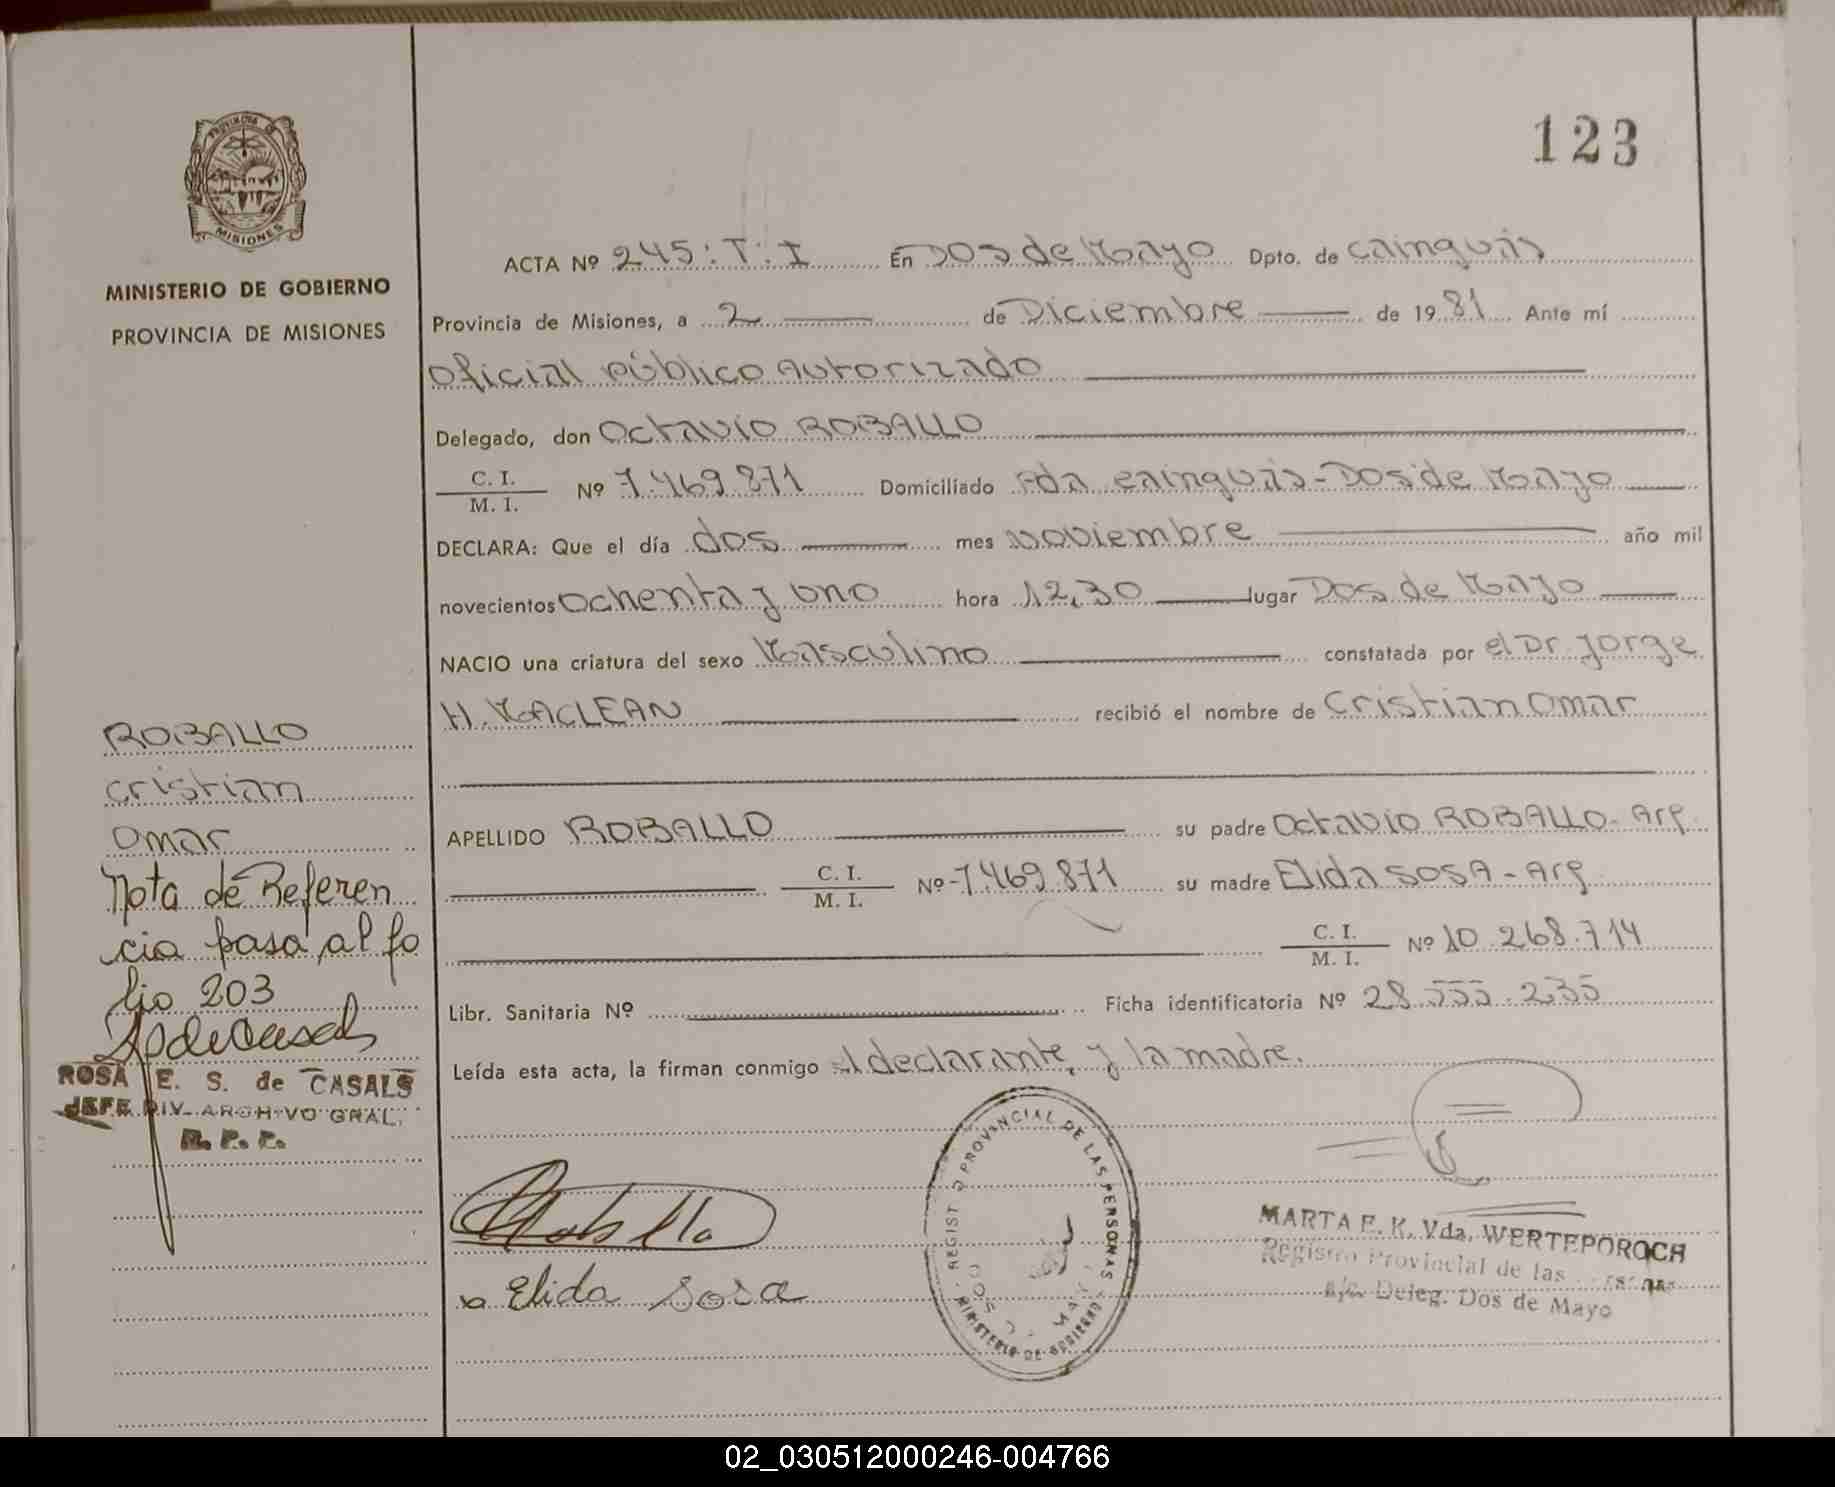 123
PROVINCIA DE
MISIONES
MINISTERIO DE GOBIERNO
PROVINCIA DE MISIONES
ACTA Nº 245:T:I En DOS de Mayo Dpto. de Cainguás
Provincia de Misiones, a 2 de Diciembre de 1981 Ante mí
Oficial Público Autorizado
Delegado, don Octavio ROBALLO
C. I.
M. I. Nº 7.469.871 Domiciliado Pda Cainguás-Dos de Mayo
DECLARA: Que el día dos mes Noviembre año mil
novecientos Ochenta y Uno hora 12,30 lugar Dos de Mayo
NACIO una criatura del sexo Masculino constatada por el Dr. Jorge
H. MACLEAN recibió el nombre de Cristian Omar
APELLIDO ROBALLO su padre Octavio ROBALLO- Arg.
C. I.
M. I. Nº -7.469.871 su madre Elida SOSA - Arg.
C. I.
M. I. Nº 10.268.714
Libr. Sanitaria Nº Ficha identificatoria Nº 28.555.235
Leída esta acta, la firman conmigo el declarante, y la madre.
ROBALLO
Cristian
Omar
Nota de Referen
cia pasa al fo
lio 203
ROSA E. S. de CASALS
JEFE DIV. ARCHIVO GRAL.
R. P. P.
Elida Sosa
REGISTRO PROVINCIAL DE LAS PERSONAS
MINISTERIO DE GOBIERNO
DOS DE MAYO
MARTA E. K. Vda. WERTEPOROCH
Registro Provincial de las
a/c. Deleg. Dos de Mayo
02_030512000246-004766